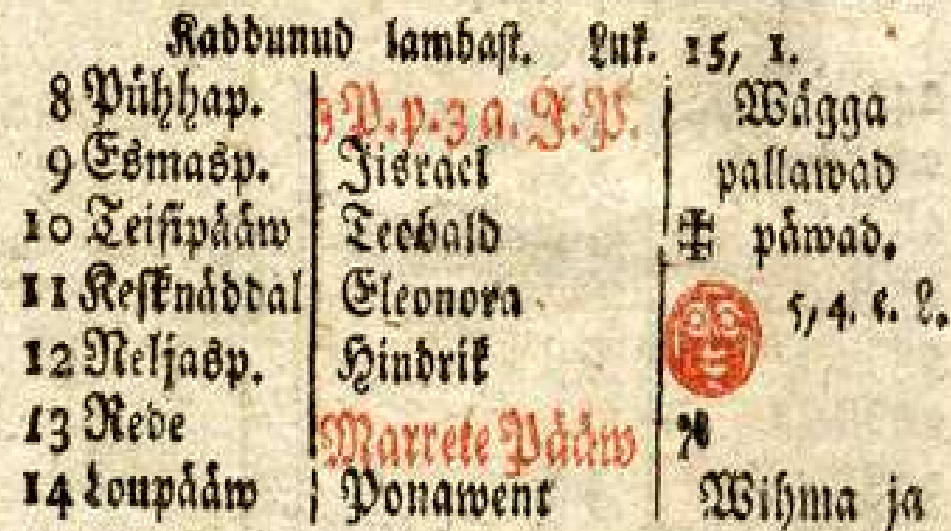 Kaddunud lambast. Luk. 15, 1.
8 Pühhap. 3 P. p. 3 a. J. P. Wägga
9 Esmasp. Jisrael pallawad
10 Teisipääw Teobald päwad.
11 Kesknäddal Eleonora 5, 4. e. L.
12 Neljasp. Hindrik
13 Rede Marrete Pääw
14 Loupääw Ponawent Wihma ja